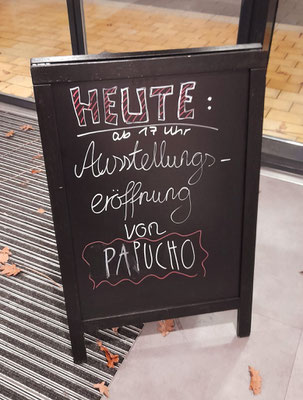 HEUTE:
ab 17 Uhr
Ausstellungs-
eröffnung
von
PAPUCHO